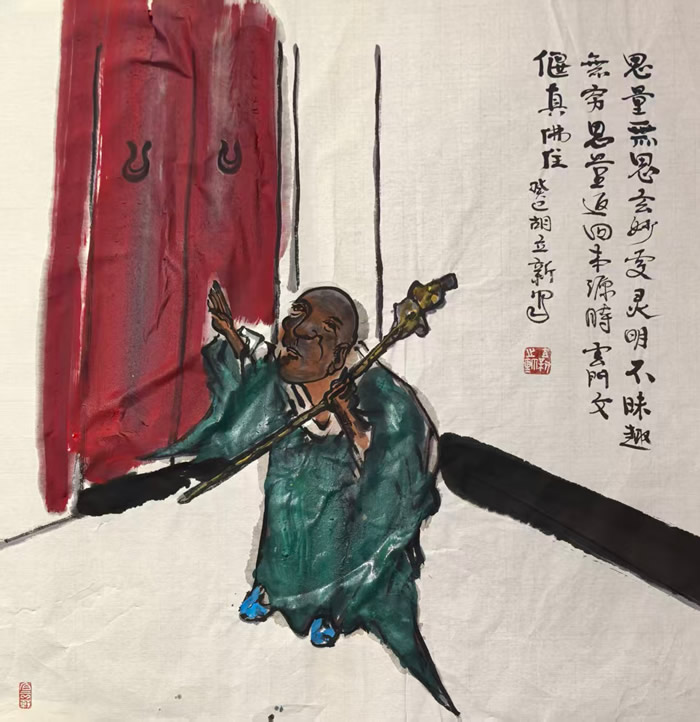 思量無思玄妙灵明不昧趣
無穷思量返回本源時雲門文
偃真佛住
癸巳胡立新写